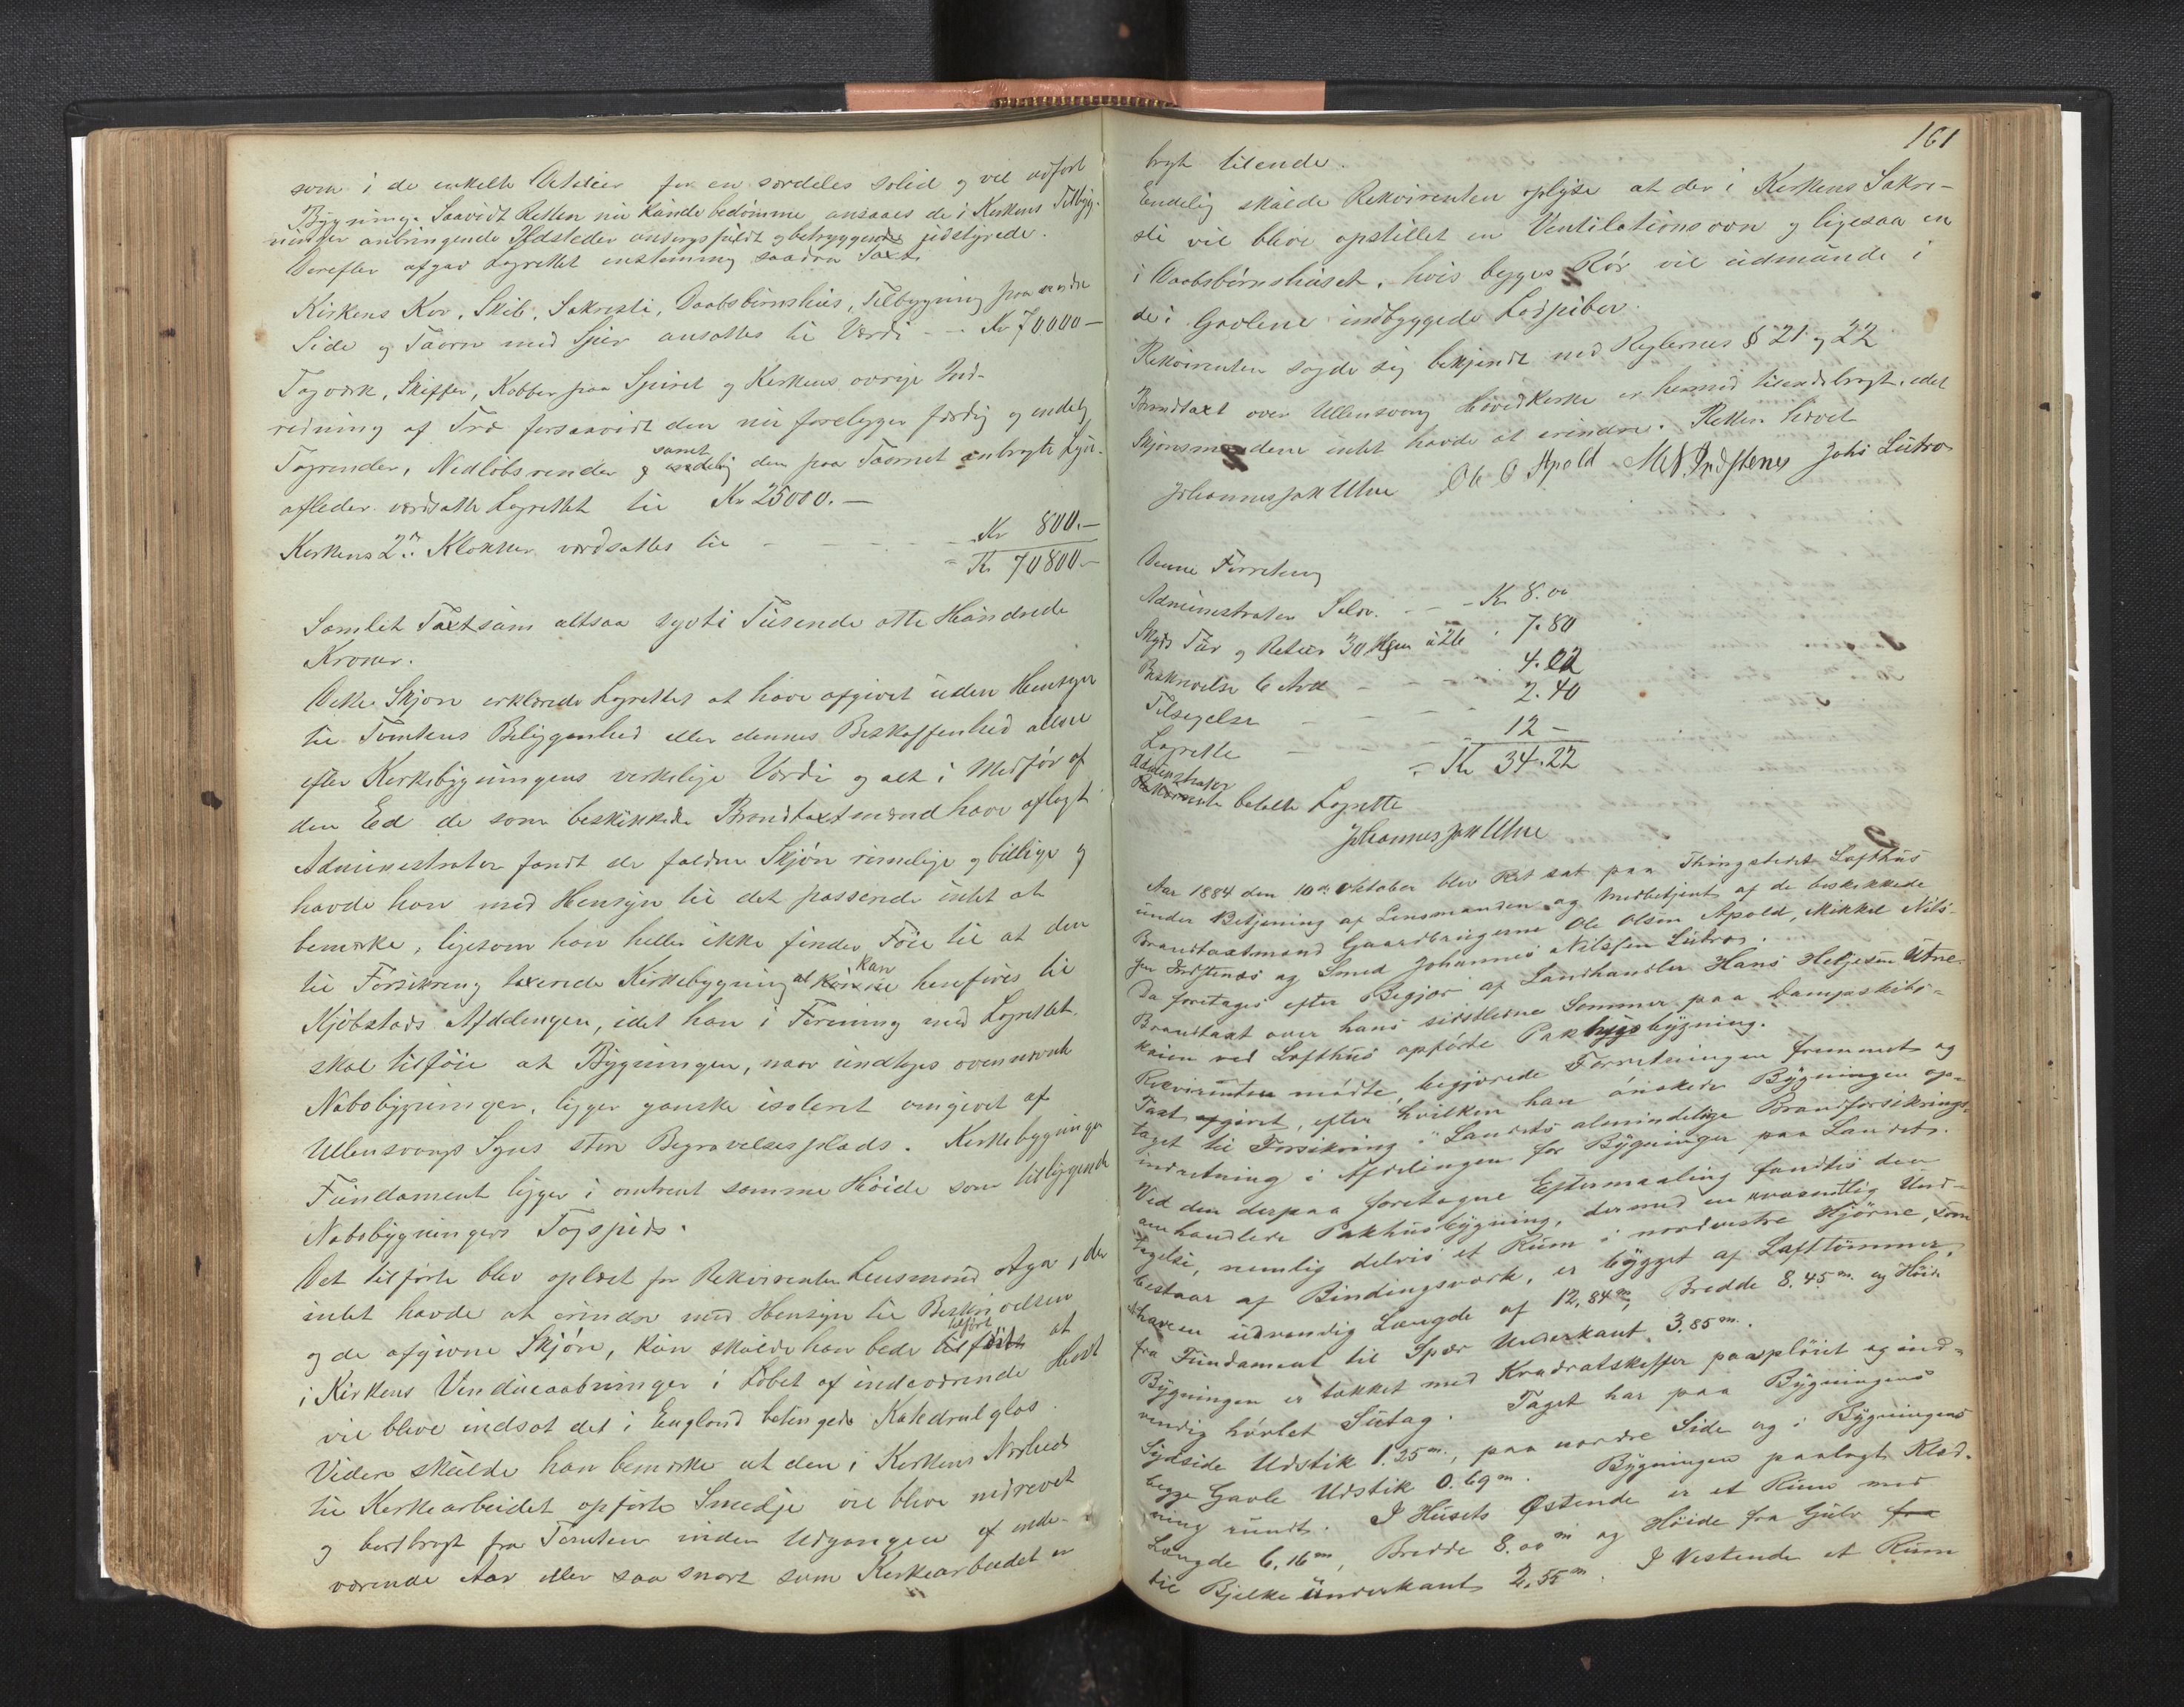 som i de enkelte Detaljer for en særdeles solid og vel udført
Bygning. Saavidt Retten nu kunde bedømme ansaaes de i Kirkens Tilbyg-
ninger anbringende Ildsteder omsorgsfuldt og betryggende udstyrede.
Derefter afgav Lagrettet enstemmig saadan Taxt
Kirkens Kor, Skib, Sakristi, Daabsbørnshus, Tilbygning paa nordre
Side og Taarn med Spir ansattes til Værdi - - Kr 70000 —
Tagværk, Skiffer, Kobber paa Spiret og Kirkens øvrige Ind-
redning af Træ forsaavidt den nu foreligger færdig og endelig
Tagrender, Nedløbsrender samt den paa Taarnet anbragte Lyn-
afleder værdsatte Lagrettet til Kr 25000. —
Kirkens 2de Klokker værdsattes til - - - - - Kr 800. —
= Kr 70800 —
Samlet Taxtsum altsaa sytti Tusende otte Hundrede
Kroner.
Dette Skjøn erklærede Lagrettet at have afgivet uden Hensyn
til Tomtens Beliggenhed eller dennes Beskaffenhed alene
efter Kirkebygningens virkelige Værdi og alt i Medfør af
den Ed de som beskikkede Brandtaxtmænd have aflagt
Administrator fandt de faldne Skjøn rimelige og billige og
havde han med Hensyn til det passerede intet at
bemærke, ligesom han heller ikke finder Føie til at den
til Forsikring taxerede Kirkebygning kan henføres til
Kjøbstads Afdelingen, idet han i Forening med Lagrettet
skal tilføie at Bygningen, naar undtages ovennævnte
Nabobygninger, ligger ganske isoleret omgivet af
Ullensvangs Sogns store Begravelsesplads. Kirkebygningens
Fundament ligger i omtrent samme Høide som tilliggende
Nabobygningers Tagspids.
Det tilførte blev oplæst for Rekvirenten Lensmand Aga, der
intet havde at erindre med Hensyn til Beskrivelsen
og de afgivne Skjøn, kun skulde han bede tilført at
i Kirkens Vinduesaabninger i Løbet af indeværende Høst
vil blive indsat det i England betingede Katedralglas.
Videre skulde han bemærke at den i Kirkens Nærhed
til Kirkearbeidet opførte Smedje vil blive nedrevet
og bortbragt fra Tomten inden Udgangen af inde-
værende Aar eller saa snart som Kirkearbeidet er
161
bragt tilende.
Endelig skulde Rekvirenten oplyse at der i Kirkens Sakri-
sti vil blive opstillet en Ventilationsovn og ligesaa en
i Daabsbørnshuset, hvis begges Rør vil udmunde i
de i Gavlene indbyggede Lodpiber.
Rekvirenten sagde sig bekjendt med Reglernes § 21 og 22
Brandtaxt over Ullensvang Hovedkirke er hermed tilendebragt, idet
Skjønsmændene intet havde at erindre. Retten hævet
Johannes Jak Utne Ole O Apold M N Indstenes Johs Lutro
Denne Forretning
Administrator Selv. - - - Kr 8.00
Skyds Før og Retur 30 Kgm a 26 - 7.80
Beskrivelse 6 Ark - - - 4.02
Tilsigelse - - - - 2.40
Lagrette - - - - 12 —
= Kr 34.22
Administrator betalte Lagrette
Johannes Jak Utne
Aar 1884 den 10de Oktober blev Ret sat paa Thingstedet Lofthus
under Betjening af Lensmanden og Medbetjent af de beskikkede
Brandtaxtmænd Gaardbrugerne Ole Olsen Apold, Mikkel Nils-
sen Indstenæs og Smed Johannes Nilssen Lutro.
Da foretages efter Begjær af Landhandler Hans Helgesen Utne
Brandtaxt over hans sidstledne Sommer paa Dampskibs-
kaien ved Lofthus opførte Pakhusbygning.
Rekvirenten mødte, begjærede Forretningen fremmet og
Taxt afgivet, efter hvilken han ønskede Bygningen op-
taget til Forsikring i Landets almindelige Brandforsikrings-
indretning i Afdelingen for Bygninger paa Landet.
Ved den derpaa foretagne Eftermaaling fandtes den
omhandlede Pakhusbygning, der med en uvæsentlig Und-
tagelse, nemlig delvis et Rum i nordvestre Hjørne, som
bestaar af Bindingsværk, er bygget af Lafttømmer,
at have en udvendig Længde af 12,84 m, Bredde 8.45 m. og Høide
fra Fundament til Spær Underkant 3.85 m.
Bygningen er takket med Kvadratskiffer paa pløiet og ind-
vendig høvlet Sutag. Taget har paa Bygningens
Sydside Udstik 1.25 m, paa nordre Side og i Bygningens
begge Gavle Udstik 0.69 m. Bygningen paalagt Klæd-
ning rundt. I Husets Østende er et Rum med
Længde 6,16 m, Bredde 8.00 m og Høide fra Gulv fra
til Bjelke Underkant 2,55 m. I Vestende et Rum